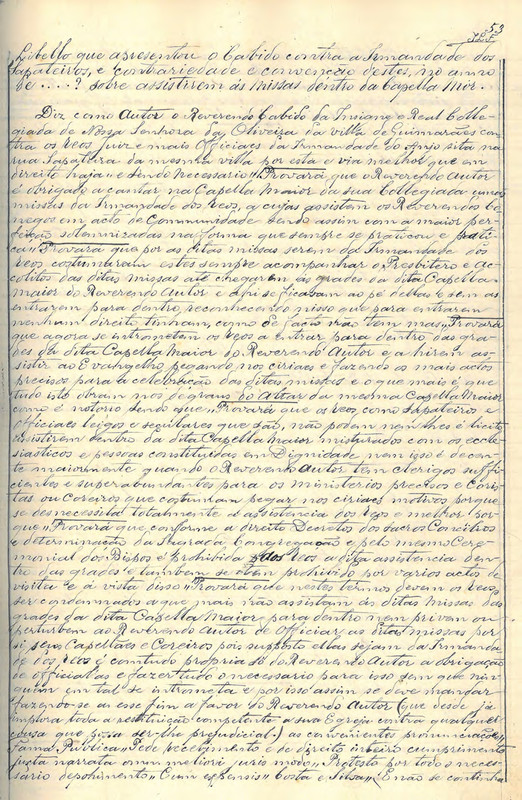 53
Libello que apresentou o Cabido contra a Irmandade dos
Sapateiros, e contrariedade e convenção destes, no anno
de .....? sobre assistirem ás missas dentro da Capella Mór.
Diz como Autor o Reverendo Cabido da Insigne e Real Colle-
giada de Nossa Senhora da Oliveira da villa de Guimarães con-
tra os Reos Juiz e mais Officiaes da Irmandade do Anjo sita na
rua Sapateira da mesma villa por esta e via melhor que em
direito haja" e sendo necessario" Provará que o Reverendo Autor
é obrigado a cantar na Capella Maior da sua Collegiada
missas da Irmandade dos Reos, a cujas assistem os Reverendos Co-
negos em acto de Communidade sendo assim com a maior per-
feição solemnizadas na forma que sempre se praticou e prati-
ca" Provará que por as ditas missas serem da Irmandade dos
Reos costumaram estes sempre acompanhar o Presbitero e Ac-
colitos das ditas missas até chegarem ás grades da dita Capella
maior do Reverendo Autor e ahi se ficavam ao pé dellas e sem as
entrarem para dentro, reconhecendo nisso que para entrarem
nenhum direito tinham, como de facto não tem mas" Provará
que agora se intrometem os Reos a entrar para dentro das gra-
des da dita Capella Maior do Reverendo Autor e a hirem as-
sistir ao Evangelho pegando nos ciriaes e fazendo os mais actos
precisos para a celebração das ditas missas e o que mais é que
tudo isto obram nos degraus do Altar da mesma Capella Maior
como é notorio sendo que" Provará que os Reos, como Sapateiros e
officiaes leigos e seculares que são, não podem nem lhes é licito
assistirem dentro da dita Capella Maior misturados com os eccle-
siasticos e pessoas constituidas em Dignidade nem isso é decen-
te maiormente quando o Reverendo Autor tem clerigos suffi-
cientes e superabundantes para os ministerios precisos e Coris-
tas ou Coreiros que costumam pegar nos ciriaes motivos porque
se desnecessita totalmente a assistencia dos leigos e melhor por-
que" Provará que conforme a direito Decretos dos sacros Concilios
e determinação da Sagrada Congregação e pelo mesmo Cere-
monial dos Bispos é prohibida aos Reos a dita assistencia den-
tro das grades e tambem se prohibido por varios actos de
visita e á vista disso" Provará que nestes termos devem os Reos
ser condemnados a que mais não assistam ás ditas Missas das
grades da dita Capella Maior para dentro nem privem ou
perturbem ao Reverendo Autor de Officiar as ditas missas por
si, seus Capellães e Coreiros pois supposto ellas sejam da Irmanda-
de dos Reos é comtudo propria do Reverendo Autor a obrigação
de official-as e fazer tudo o necessario para isso sem que nin-
guem em tal se intrometa e por isso assim se deve mandar
fazendo-se a esse fim a favor do Reverendo Autor (que desde já
implora toda a restituição competente a sua Egreja contra qualquer
cousa que possa ser-lhe prejudicial.) as convenientes pronunciações"
Fama Publica" Pede recebimento e de direito inteiro cumprimento
justa narrata omni meliori juris modo" Protesta por todo o neces-
sario depoimento" Cum expensis" Costa e Silva" E não se continha